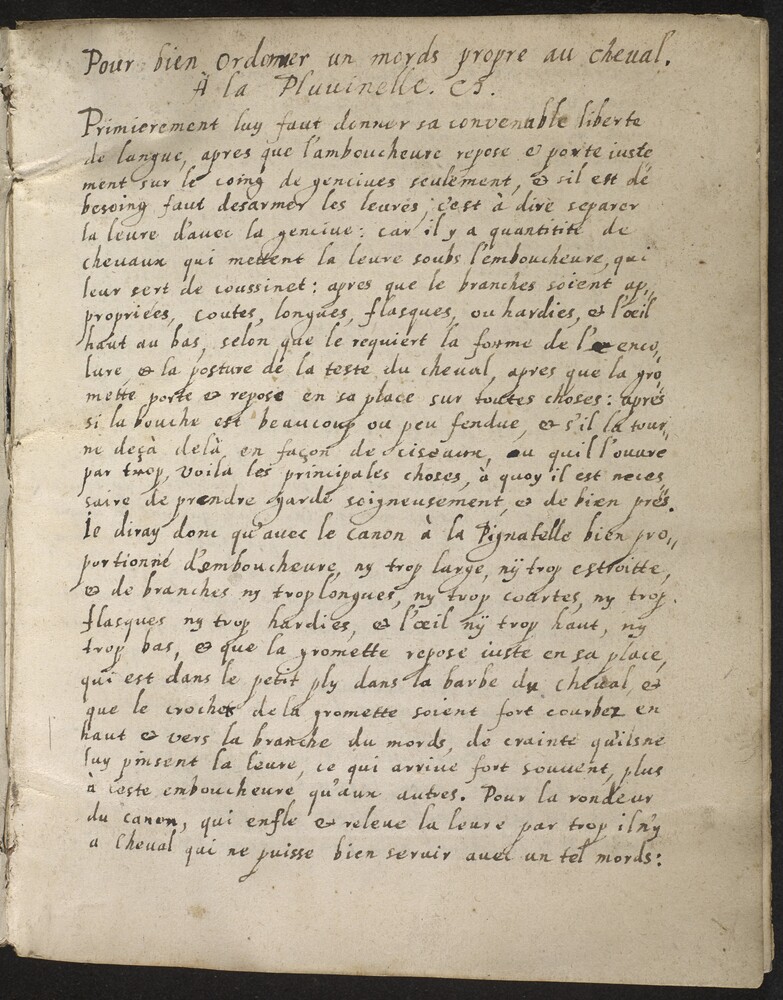 Pour bien ordonner un mords propre au cheval.
A la Pluuinelle.
Primierement luy faut donner sa convenable liberte
de langue, apres que l'amboucheure repose & porte iuste
ment sur le coing de genciues seulement, & sil est de
besoing faut desarmer les leures, c'est à dire separer
la leure d'auec la genciue: car il y a quantitité de
chevaux qui mettent la leure soubs l'emboucheure, qui
leur sert de coussinet: apres que le branches soient ap,,
propriées, coutes, longues, flasques, ou hardies, & l'œil
haut au bas, selon que le requiert la forme de l' enco,,
lure, & la posture de la teste du cheual, apres que la gro
mette porte & repose en sa place sur toutes choses: apres
si la bouche est beaucoup ou peu fendue, & s'il la tour,,
ne deçà delà, en façon de ciseaux, ou quil l'ouure
par trop, voila les principales choses, à quoy il est neces,,
saire de prendre garde soigneusement, & de bien prés.
Ie diray donc qu'avec le canon à la Pignatelle bien pro,,
portionné d'emboucheure, ny trop large, nÿ trop estroitte,
& de branches ny trop longues, ny trop courtes, ny trop
flasques ny trop hardies, & l'œil nÿ trop haut, ny
trop bas, & que la gromette repose iuste en sa place,
qui est dans le petit ply dans la barbe du cheual, &
que le crochet de la gromette soient fort courbez en
haut & vers la branche du mords, de crainte quilsne
luy pinsent la leure, ce qui arriue fort souuent, plus
à ceste emboucheure qu'aux autres. Pour la rondeur
du canon, qui enfle & releue la leure par trop il n'y
a Cheual qui ne puisse bien seruir auec un tel mords: